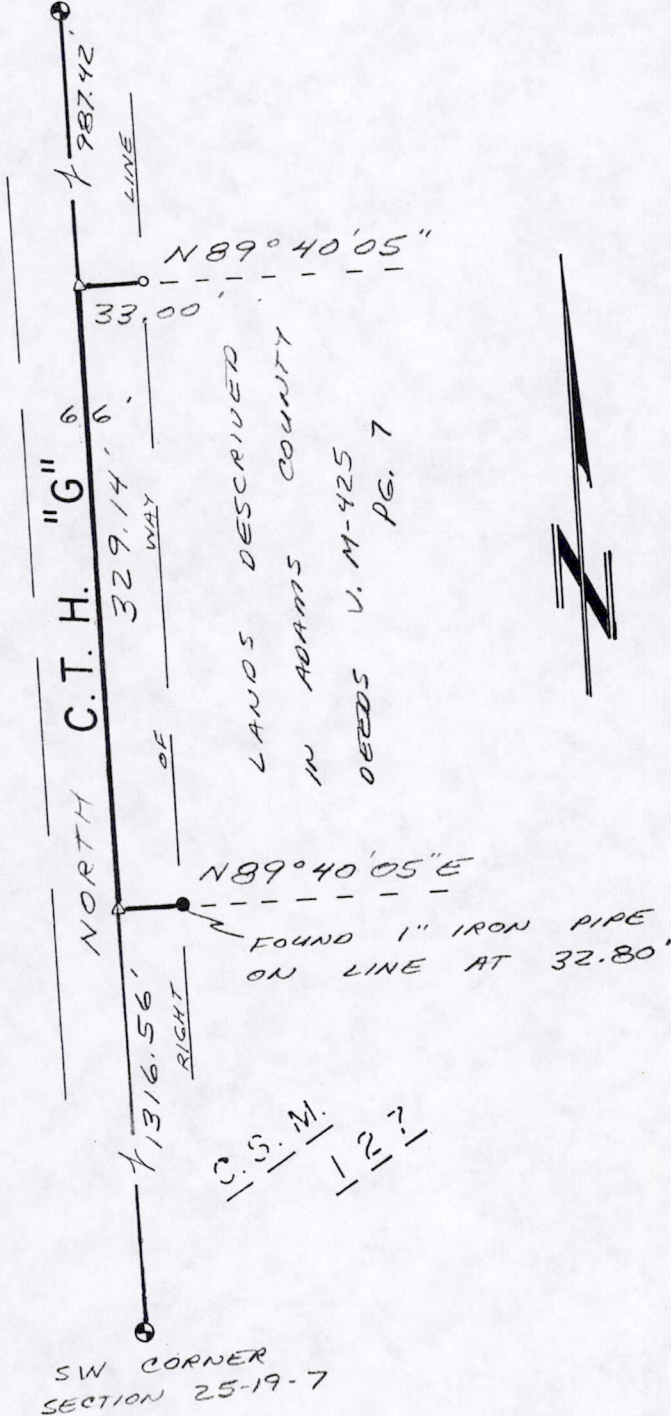 987.42'
LINE
N 89° 40' 05"
33.00'
66'
C. T. H. "G"
329.14'
WAY
LANDS DESCRIVED
IN ADAMS COUNTY
DEEDS V. M-425
PG. 7
N
NORTH
OF
N 89° 40' 05" E
FOUND 1" IRON PIPE
ON LINE AT 32.80'
1316.56'
RIGHT
C. S. M.
1 2 7
SW CORNER
SECTION 25-19-7